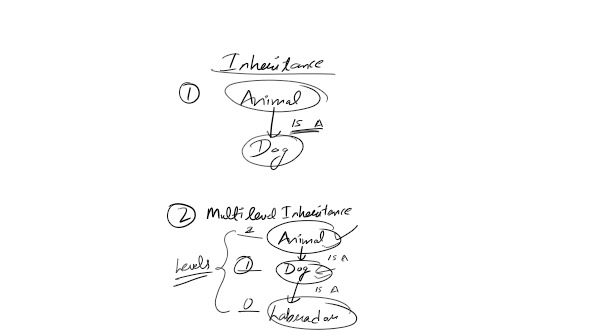 Inheritance
1
Animal
IS A
Dog
2 Multilevel Inheritance
2 Animal
IS A
Levels 1 Dog
IS A
0 Labrador